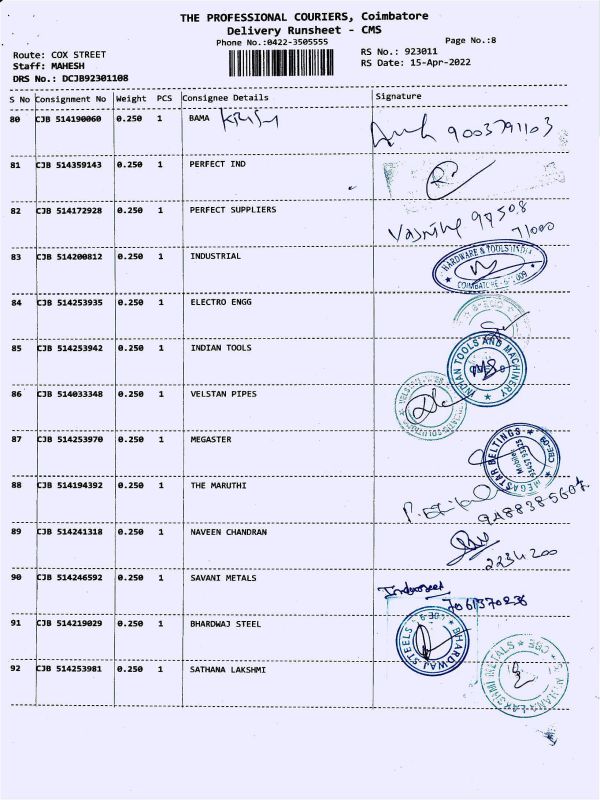 THE PROFESSIONAL COURIERS, Coimbatore
Delivery Runsheet - CMS
Phone No.:0422-3505555
Page No.:8
Route: COX STREET
RS No.: 923011
Staff: MAHESH
RS Date: 15-Apr-2022
DRS No.: DCJB92301108
S No Consignment No Weight PCS Consignee Details Signature
80 CJB 514190060 0.250 1 BAMA 9003791103
81 CJB 514359143 0.250 1 PERFECT IND
82 CJB 514172928 0.250 1 PERFECT SUPPLIERS 97508
71000
83 CJB 514200812 0.250 1 INDUSTRIAL HARDWARE & TOOLS
84 CJB 514253935 0.250 1 ELECTRO ENGG
85 CJB 514253942 0.250 1 INDIAN TOOLS INDIAN TOOLS AND MACHINERY
86 CJB 514033348 0.250 1 VELSTAN PIPES
87 CJB 514253970 0.250 1 MEGASTER MEGASTAR BELTINGS CBE-09
88 CJB 514194392 0.250 1 THE MARUTHI
89 CJB 514241318 0.250 1 NAVEEN CHANDRAN 2234200
90 CJB 514246592 0.250 1 SAVANI METALS
91 CJB 514219029 0.250 1 BHARDWAJ STEEL BHARDWAJ STEELS CBE-9
92 CJB 514253981 0.250 1 SATHANA LAKSHMI LAKSHMI METALS CBE